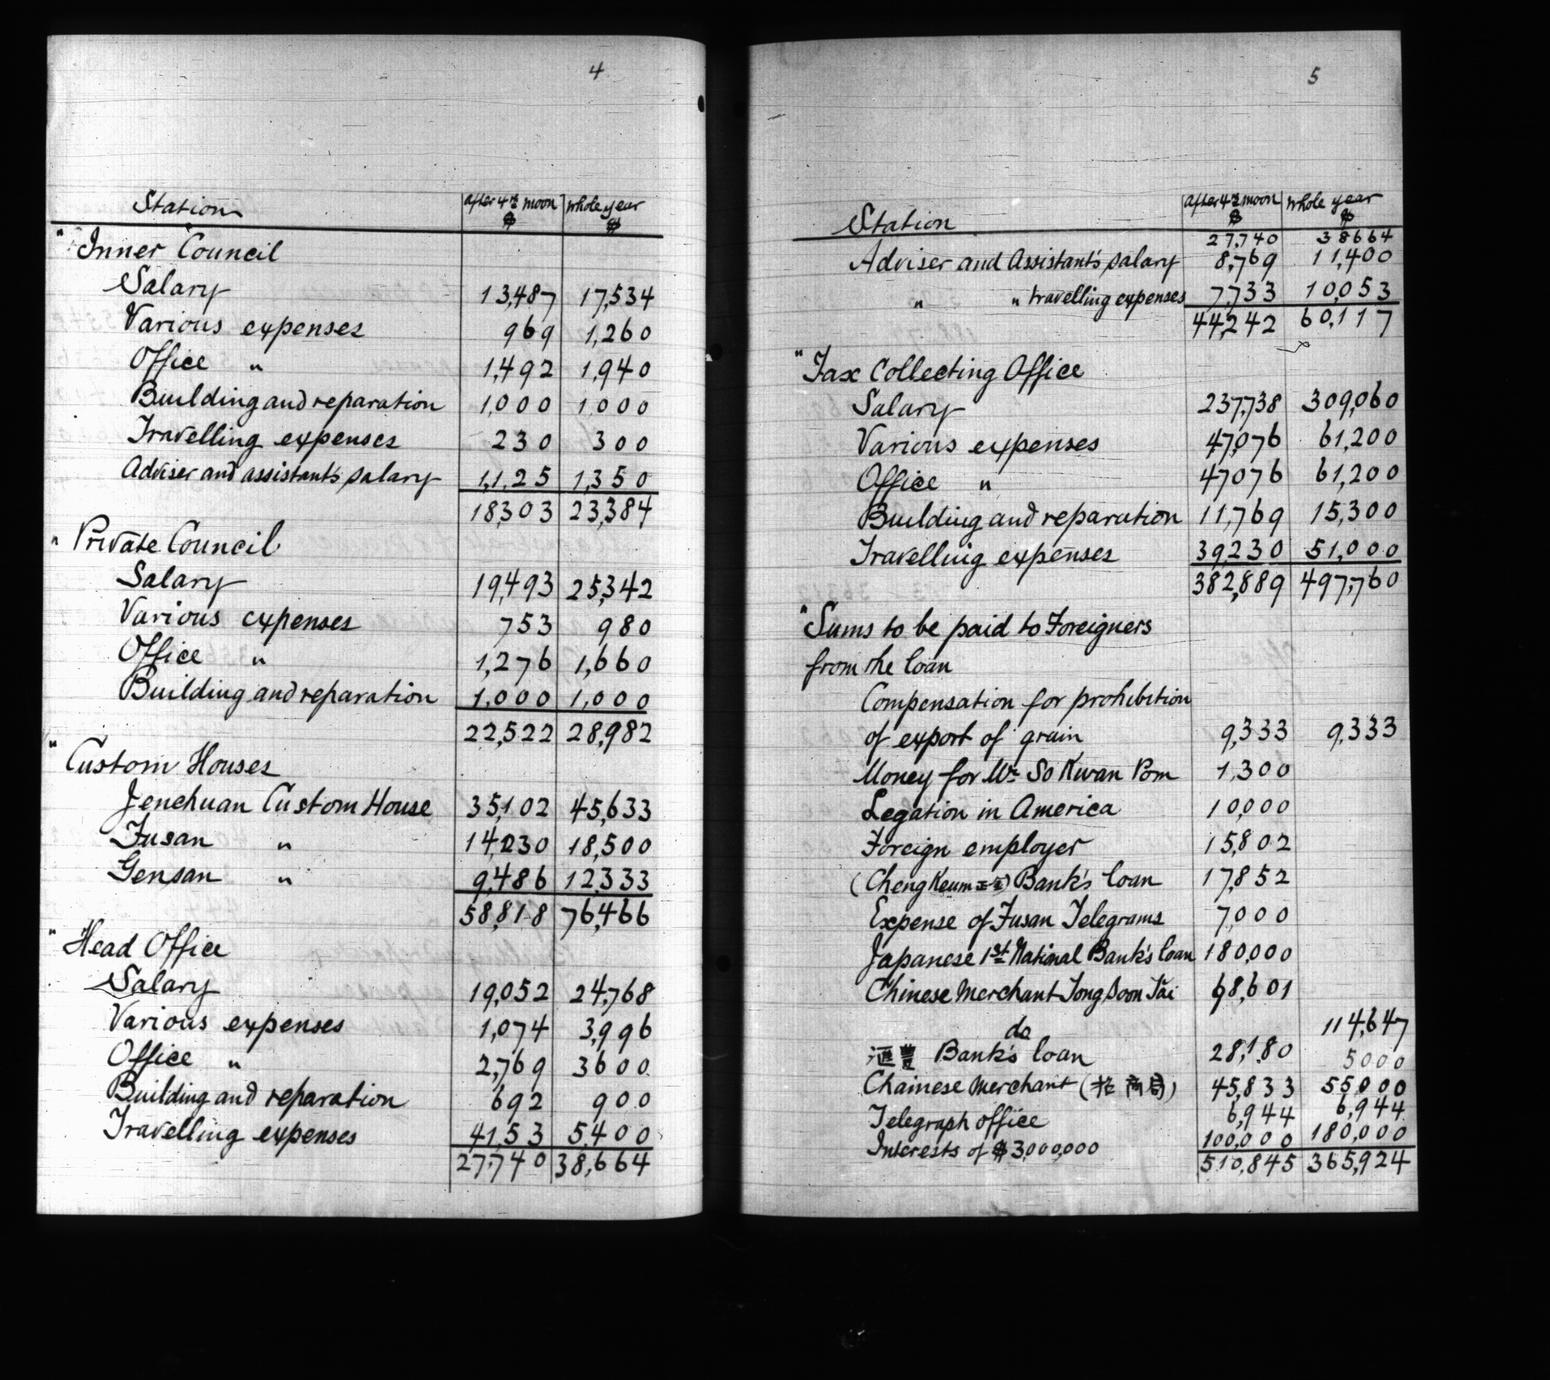 4
Station after 4th moon $ Whole year $
" Inner Council
Salary 13,487 17,534
Various expenses 969 1,260
Office " 1,492 1,940
Building and reparation 1,000 1,000
Travelling expenses 230 300
Adviser and assistant's salary 1,125 1,350
18,303 23,384
" Private Council
Salary 19,493 25,342
Various expenses 753 980
Office " 1,276 1,660
Building and reparation 1,000 1,000
22,522 28,982
" Custom Houses
Jenchuan Custom House 35,102 45,633
Fusan " 14,230 18,500
Gensan " 9,486 12,333
58,818 76,466
" Head Office
Salary 19,052 24,768
Various expenses 1,074 3,996
Office " 2,769 3600
Building and reparation 692 900
Travelling expenses 4,153 5,400
27,740 38,664
5
Station after 4th moon $ Whole year $
27,740 38664
Adviser and Assistant's salary 8,769 11,400
" " travelling expenses 7,733 10,053
44,242 60,117
" Tax Collecting Office
Salary 237,738 309,060
Various expenses 47,076 61,200
Office " 47,076 61,200
Building and reparation 11,769 15,300
Travelling expenses 39,230 51,000
382,889 497,760
" Sums to be paid to Foreigners
from the loan
Compensation for prohibition
of export of grain 9,333 9,333
Money for Mr So Kwan Pom 1,300
Legation in America 10,000
Foreign employer 15,802
(Cheng Keum) Bank's loan 17,852
Expense of Fusan Telegrams 7,000
Japanese 1st National Bank's loan 180,000
Chinese Merchant Tong Soon Tai 68,601
do 114,647
滙豐 Bank's loan 28,180 5000
Chainese Merchant (招商局) 45,833 55,000
Telegraph office 6,944 6,944
Interests of $3,000,000 100,000 180,000
510,845 365,924